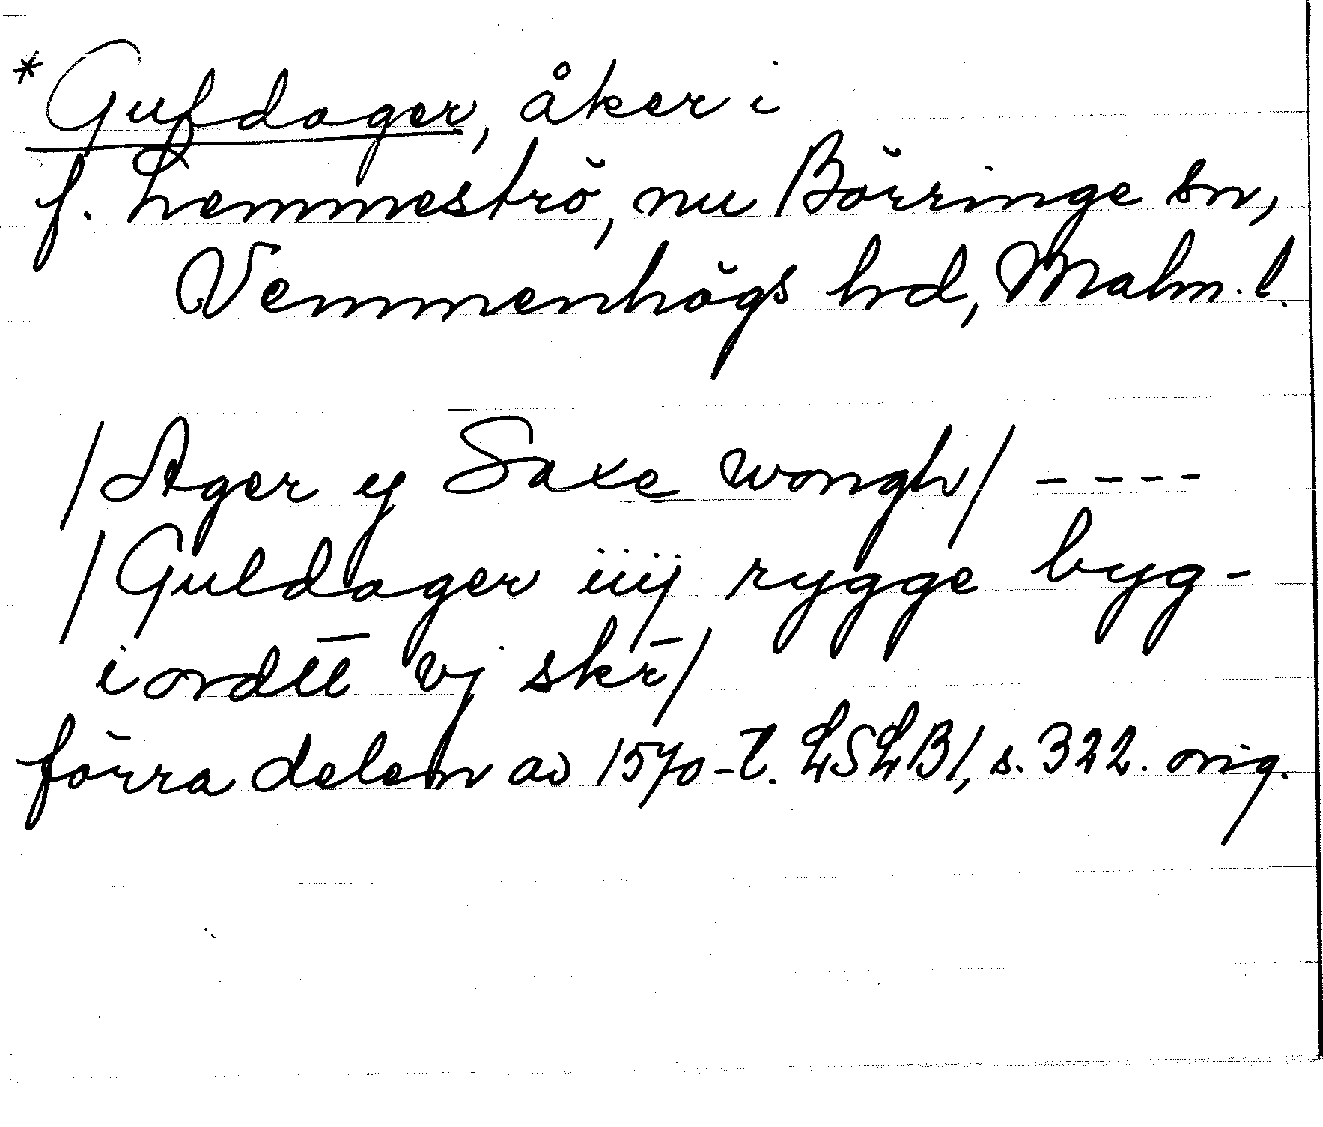 *Guldager, åker i
f. Lemmeströ, nu Börringe sn,
Vemmenhögs hd, Malm. l.
/Ager y Saxe wongh/ ----
/Guldager iiij rygge byg-
iordtt vj skr̄/
förra delen av 1570-t. LSLB1, s. 322. orig.